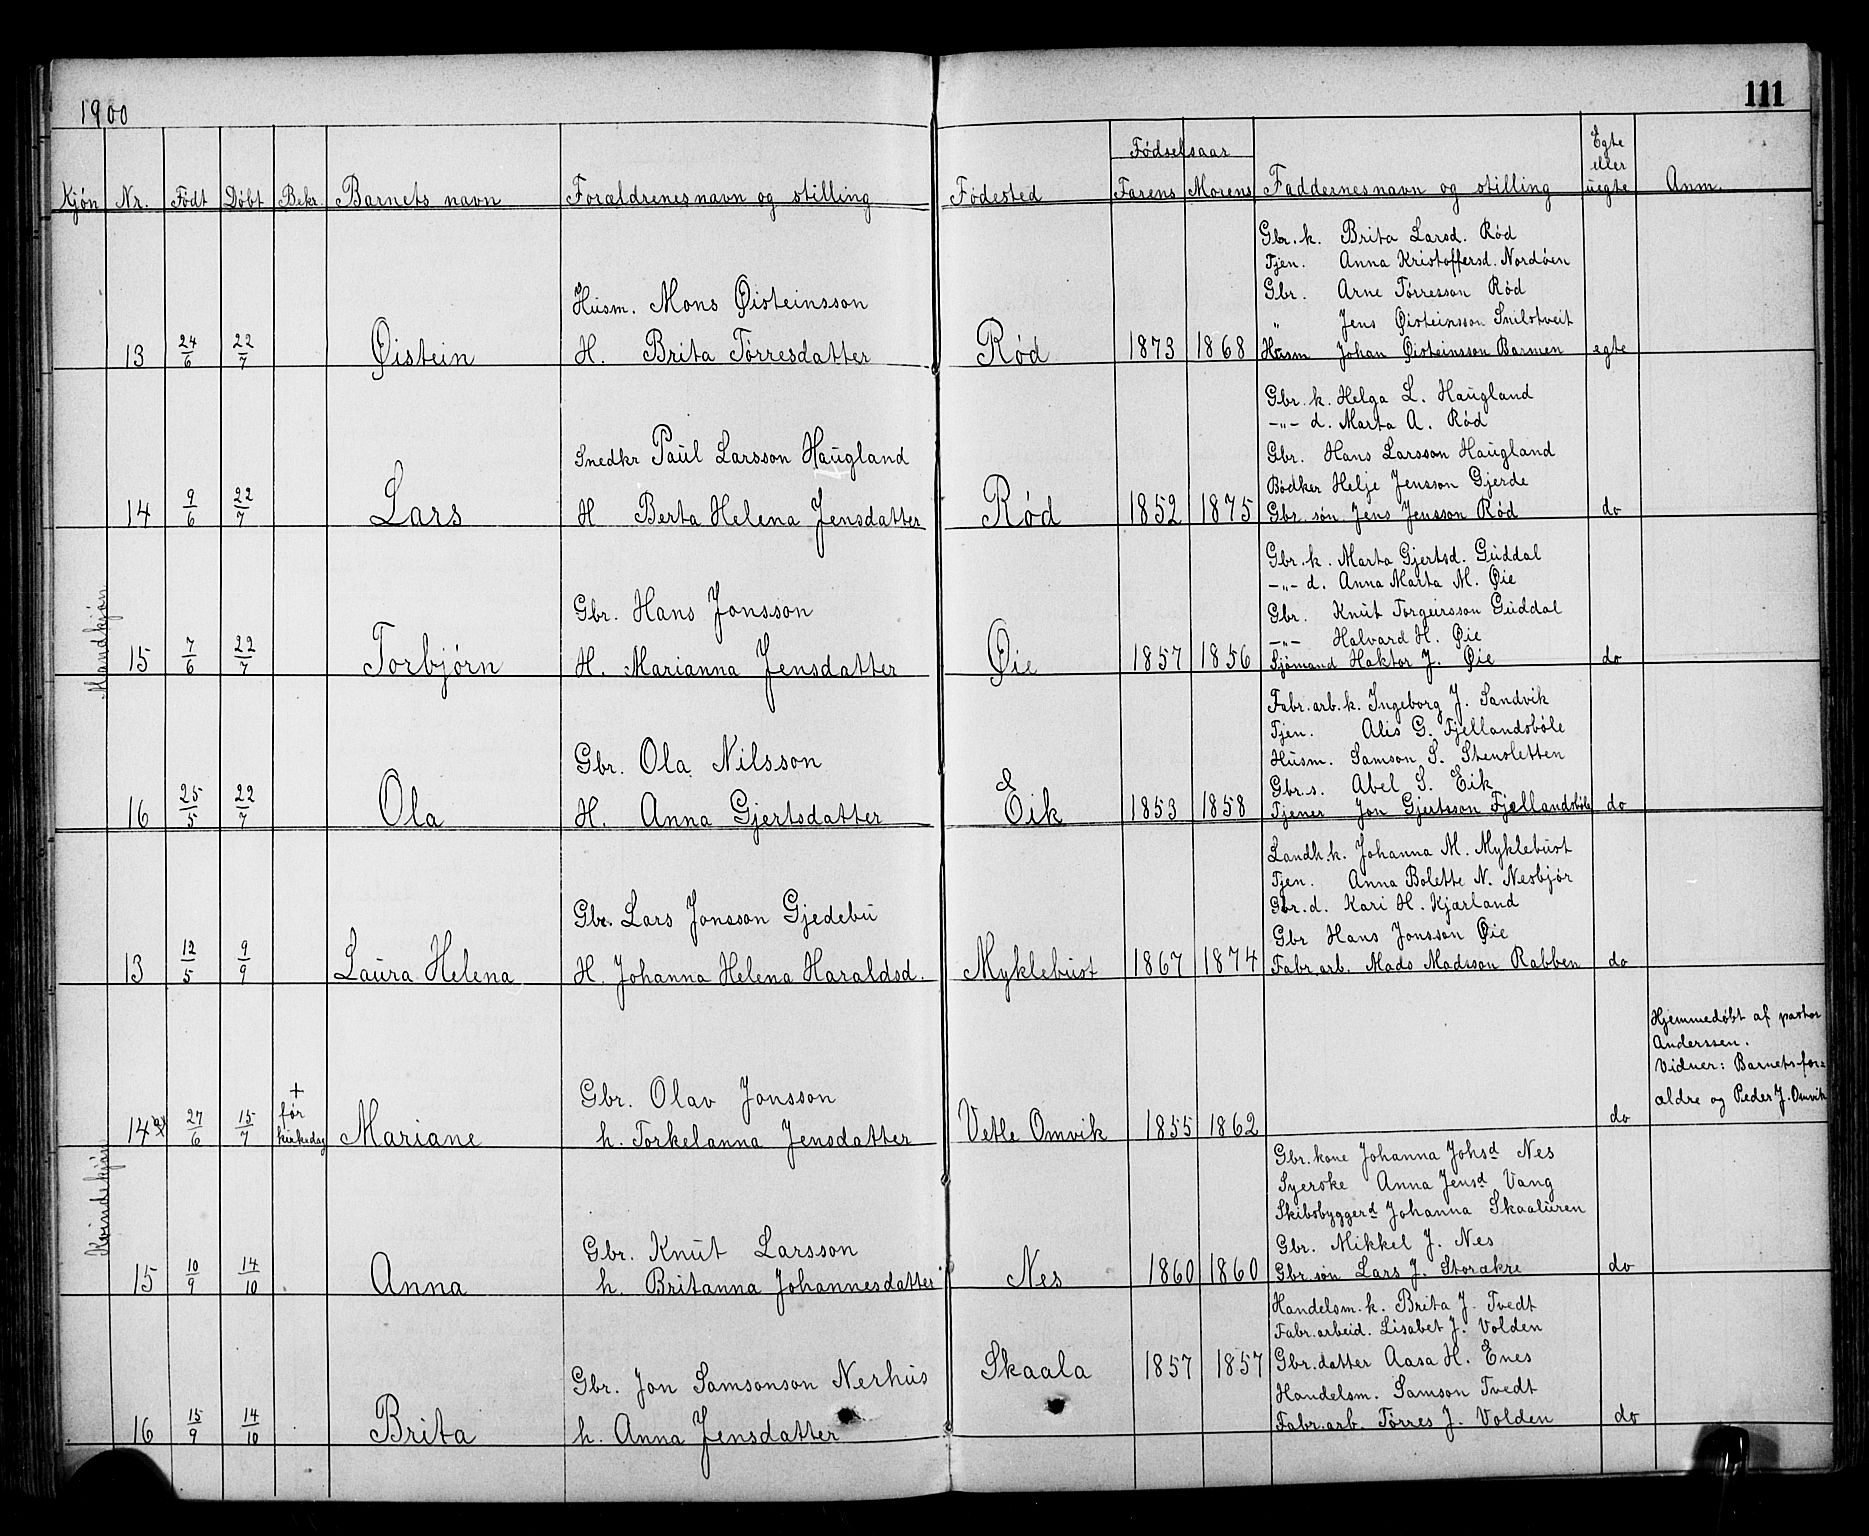 1900
111
Kjøn Nr. Født Døbt Bekr. Barnets navn Forældrenes navn og stilling Fødested Fødselsaar Farens Morens Faddernes navn og stilling Egte eller uegte Anm.
Mandkjøn
Gbr. k. Brita Larsd. Rød
Tjen. Anna Kristoffersd. Nordøen
Husm. Mons Øisteinsson
Gbr. Arne Tørresson Rød
" Jens Øisteinsson Snilstveit
13 24/6 22/7 Øistein H. Brita Tørresdatter Rød 1873 1868 Husm Johan Øisteinsson Barmen egte
Gbr. k. Helga L. Haugland
-"- d. Marta A. Rød
Snedkr Paul Larsson Haugland
Gbr. Hans Larsson Haugland
Bødker Helje Jensson Gjerde
14 9/6 22/7 Lars H Berta Helena Jensdatter Rød 1852 1875 Gbr. søn Jens Jensson Rød do
Gbr. k. Marta Gjertsd. Guddal
-"- d. Anna Marta M. Øie
Gbr. Hans Jonsson
Gbr. Knut Torgeirsson Guddal
-"- Halvard H. Øie
15 7/6 22/7 Torbjørn H. Marianna Jensdatter Øie 1857 1856 Sjømand Haktor J. Øie do
Fabr. arb. k. Ingeborg J. Sandvik
Tjen. Alis G. Fjellandsbøle
Gbr. Ola Nilsson
Husm. Samson S. Stensletten
Gbr. s. Abel S. Eik
16 25/5 22/7 Ola H. Anna Gjertsdatter Eik 1853 1858 Tjener Jon Gjertsson Fjellandsbøle do
Kvindekjøn
Landh. k. Johanna M. Myklebust
Tjen. Anna Bolette N. Nesbjør
Gbr. d. Kari H. Kjærland
Gbr. Lars Jonsson Gjedebu
Gbr Hans Jonsson Øie
13 12/5 9/9 Laura Helena H. Johanna Helena Haraldsd. Myklebust 1867 1874 Fabr. arb. Mads Madsson Rabben do
Hjemmedøbt af pastor
Anderssen.
Vidner: Barnets for=
ældre og Peder J. Omvik
Gbr. Olav Jonsson
14 27/6 15/7 + før kirkedag Mariane h. Torkelanna Jensdatter Vetle Omvik 1855 1862 do
Gbr. kone Johanna Johsd Nes
Syerske Anna Jensd Vang
Skibsbyggerd Johanna Skaaluren
Gbr. Knut Larsson
Gbr. Mikkel J. Nes
15 10/9 14/10 Anna h. Britanna Johannesdatter Nes 1860 1860 Gbr. søn Lars J. Storakre do
Handelsm. k. Brita J. Tvedt
Fabr. arbeid. Lisabet J. Volden
Gbr. Jon Samsonson Nerhus Skaala 1857 1857 Gbr. datter Aasa H. Enes
Handelsm. Samson Tvedt
16 15/9 14/10 Brita h. Anna Jensdatter Fabr. arb. Tørres J. Volden do